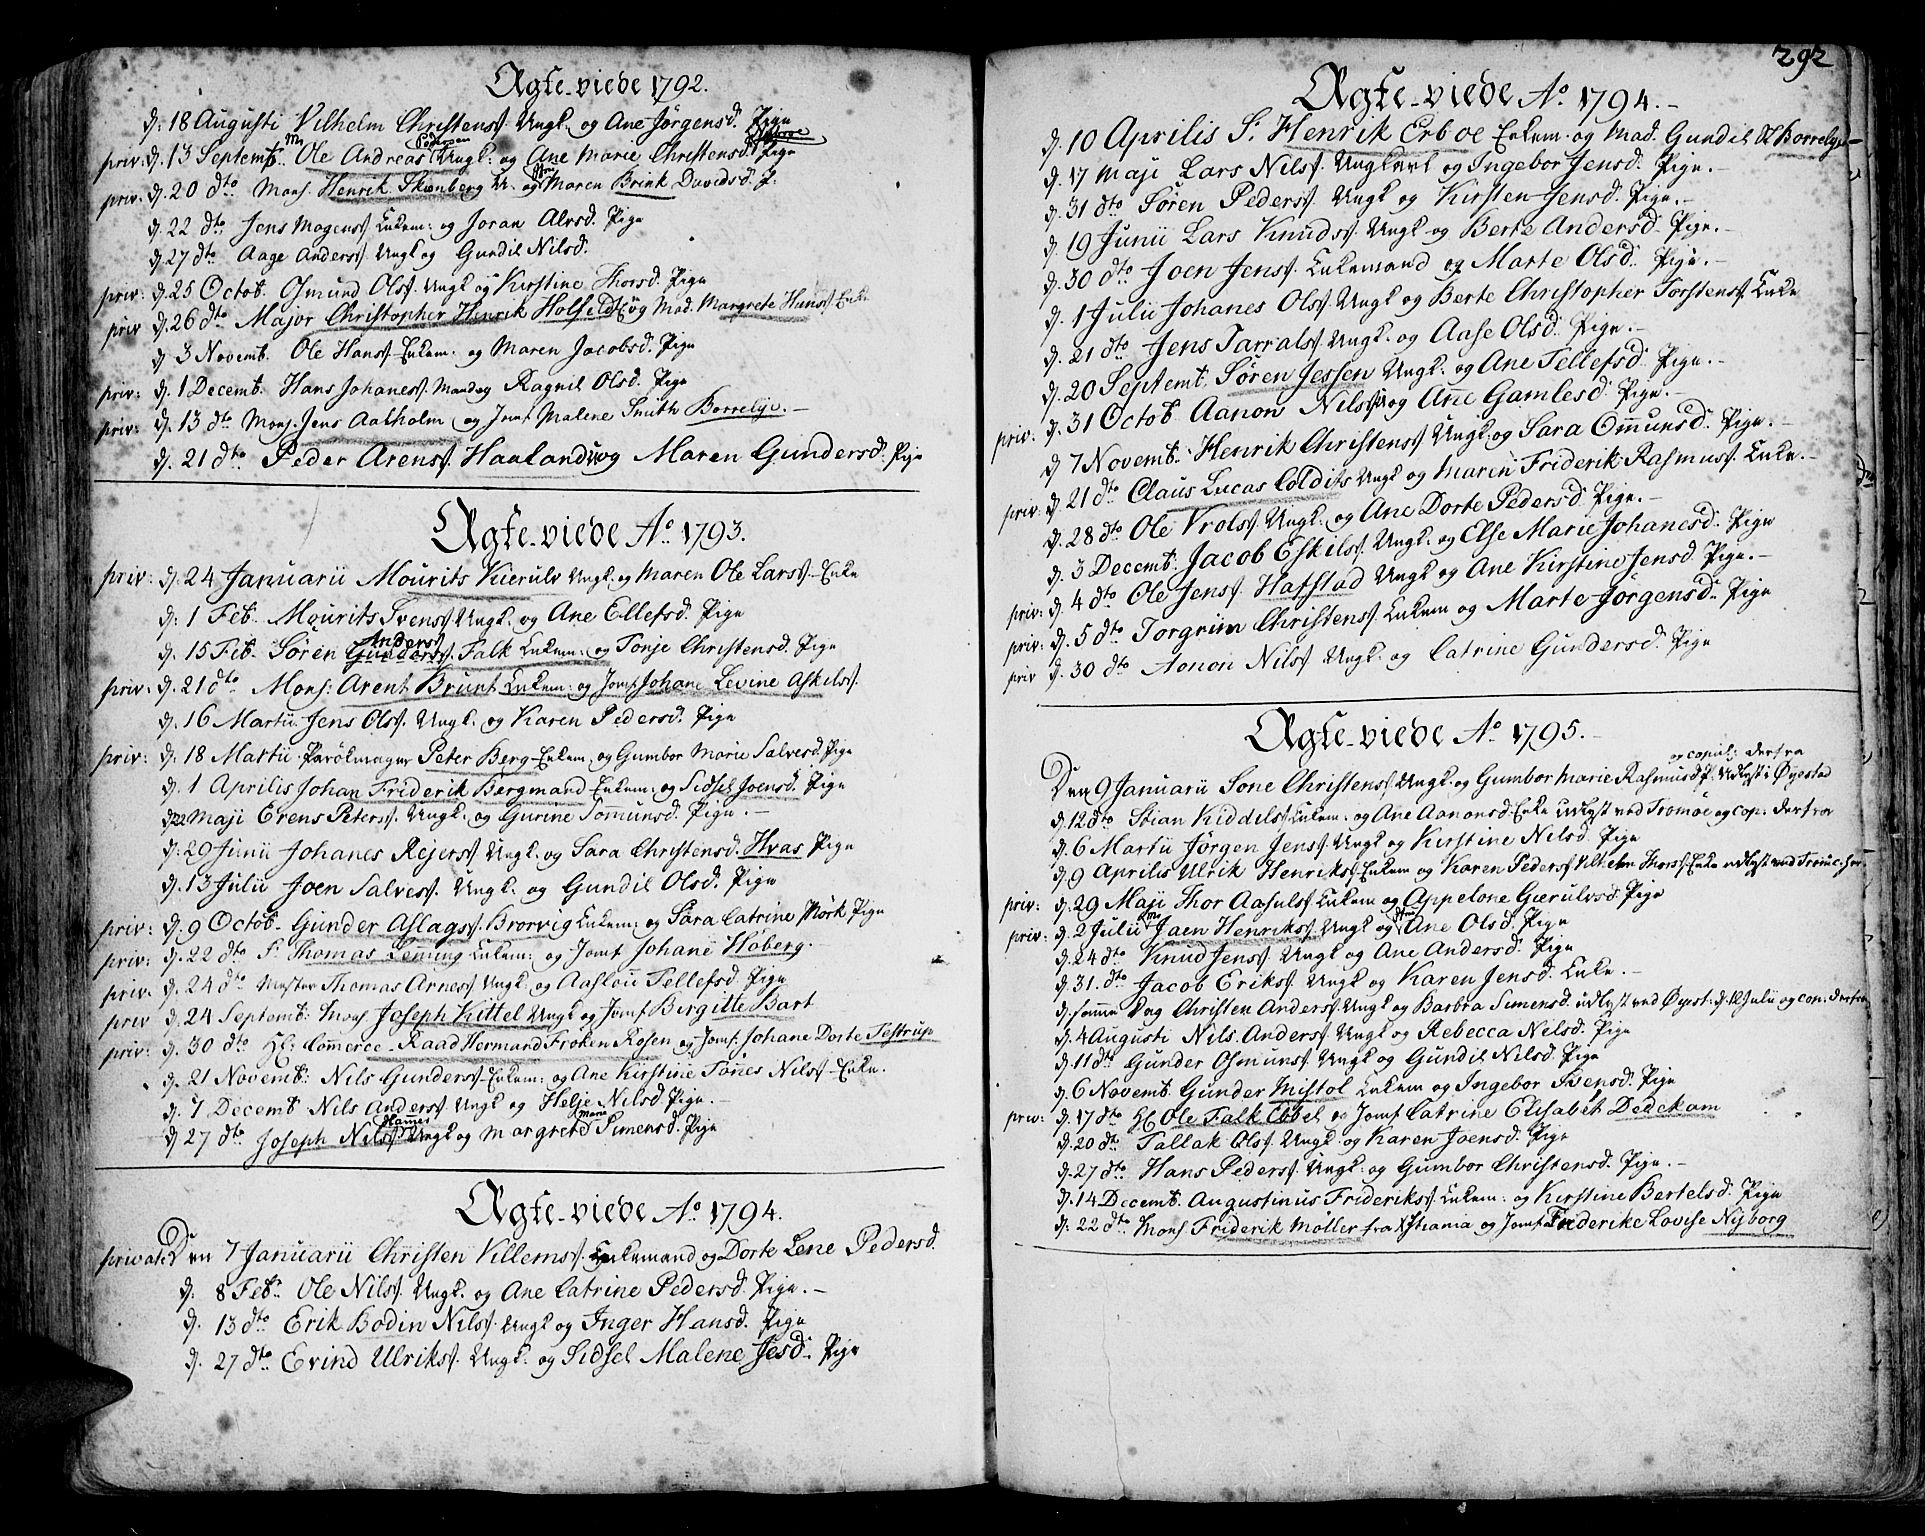 Ægte-viede 1792.
d: 18 Augusti Vilhelm Christens. Ungk: og Ane Jörgensd. Pige
priv: d. 13 Septemb. Ole Andreas Pedersen Ungk: og Ane Marie Christensd. Pige
priv. d. 20 dto Mons. Henrik og Maren Brink Davidsd. P.
d. 22 dto Jens Mogens. Enkem: og Joran Alvsd. Pige
d. 27 dto Aage Anders. Ungk og Gundil Nilsd.
priv: d. 25 Octob. Osmund Ols. Ungk og Kirstine Thorsd. Pige
priv d. 26 dto Major Christopher Henrik Holfeldt og Mad. Margrete Hans. Enke
d 3 Novemb. Ole Hans. Enkem: og Maren Jacobsd. Pige
priv: d. 1 Decemb. Hans Johanes. Ragnil Olsd. Pige
priv: d. 13 dto Mons. Jens Aalholm og Jomf Malene Smith Borrelye.-
d. 21 dto Peder Arens. Haaland og Maren Gundersd. Pige
Ægte-viede Ao. 1793.
priv: d: 24 Januarii Mourits Kierulv Ungk: og Maren Ole Lars. Enke
d: 1 Feb. Mourits Svens. Ungk. og Ane Ellefsd. Pige
d. 15 Feb. Sören Anders. Falk Enkem: og Tonje Christensd. Pige
priv: d. 21 dto Mons: Arent Brunt Enkem: og Jomf Johane Levine Askils.
d. 16 Martii Jens Ols. Ungk: og Karen Pedersd. Pige
priv: d: 18 Martii Peter Berg Enkem og Gumbor Marie Salvesd. Pige
d. 1 Aprilis Johan Friderik Bergmand Enkem: og Sidsel Joensd. Pige
Maji Erens Peters. Ungk: og Gurine Tommunsd. Pige.-
d. 29 Junii Johanes Rejers. Ungk: og Sara Christensd. Hvas Pige
d. 13 Julii Joen Salves. Ungk: og Gundil Olsd. Pige
priv: d. 9 Octob. Gunder Aslags. Brorvig Enkem: og Sara Catrine Mörk Pige
priv: d. 22 dto Sr. Thomas Enkem: og Jomf Johane Höberg.
priv: d. 24 dto Mester Thomas Arnes. Ungk. og Aaslou Tellefsd. Pige
priv d. 24 Septemb: Mons. Joseph Kittel Ungk og Jomf Birgitte Bart
priv: d. 30 dto Hl: Commerce-Raad Hermand Fröken Rosen og Jomf. Johane Dorte Testrup
d. 21 Novemb: Nils Gunders. Enkem: og Ane Kirstine Tönes Nils. Enke.
d. 7 Decemb Nils Anders. Ungk og Helje Nilsd. Pige.
d 27 dto Joseph Nils. Ungk og Margrete Marie Simensd. Pige
Ægte-viede Ao. 1794.
private Den 7 Januarii Christen Villems. Enkemand og Dorte Lene Pedersd.
d: 8 Feb. Ole Nils. Ungk. og Ane Catrine Pedersd. Pige.-
d. 13 dto Erik Bodin Nils. Ungk og Inger Hansd. Pige
d. 27 dto Evind Ulriks. Ungk: og Sidsel Malene Jesd. Pige
292
Ægte-viede Ao. 1794.-
d. 10 Aprilis Sr. Henrik Erboe Enkem: og Mad. Gundil Borrelye
d. 17 Maji Lars Nils. Ungkarl og Ingebor Jensd. Pige.-
d. 31 dto Sören Peders. Ungk og Kirsten Jensd. Pige.-
d. 19 Junii Lars Knuds. Ungk og Berte Andersd. Pige.-
d. 30 dto Joen Jens. Enkemand og Marte Olsd. Pige.-
d. 1 Julii Johanes Ols. Ungk og Berte Christopher Torstens. Enke
d. 21 dto Jens Tarrals. Ungk. og Aase Olsd. Pige.-
d. 20 Septemt. Sören Jessen Ungk. og Ane Tellefsd. Pige.-
priv: d. 31 Octob. Aanon Nils. og Ane Gamlesd. Pige.-
d 7 Novemb. Henrik Christens. Ungk og Sara Omunsd. Pige.-
priv: d. 21 dto Claus Lucas Coldits Ungk og Maren Friderik Rasmus. Enke.-
d. 28 dto Ole Vrols. Ungk: og Ane Dorte Pedersd. Pige.-
d. 3 Decemb. Jacob Eskils. Ungk. og Else Marie Johanesd. Pige
priv: d. 4 dto Ole Jens. Hafstad Ungk og Ane Kirstine Jensd. Pige.-
priv: d. 5 dto Torgrim Christens. Enkem og Marte Jörgensd. Pige
priv d. 30 dto Aonon Nils. Ungk: og Catrine Gundersd. Pige
Ægte-viede Ao. 1795.-
og copul: derfra
Den 9 Januarii Sone Christens. Ungk. og Gumbor Marie Rasmusd. P. Udlyst i Öyestad
d. 12 dto Stian Kiddels. Enkem: og Ane Aanonsd. Enke udlyst ved Tromöe og cop: derfra
d. 6 Martii Jörgen Jens. Ungk og Kirstine Nilsd. Pige
d. 9 Aprilis Ulrik Henriks. Enkem og Karen Peders. Vilhelm Thors. Enke udlyst ved
priv: d. 29 Maji Thor Aasuls. Enkem og Appelone Gierulvsd. Pige
priv: d. 2 Julii Jaen Henriks. Ungk og Ane Olsd. Pige
d. 24 dto Knud Jens. Ungk og Ane Andersd. Pige
d. 31. dto Jacob Eriks. Ungk og Karen Jensd. Enke.-
d. samme Dag Christen Anders. Ungk og Barbra Simensd. udlyst ved Öyest: d. 12 Julii og cop: derfra
d. 4 Augusti Nils Anders. Ungk og Rebecca Nilsd. Pige
d. 11 dto Gunder Osmuns. Ungk og Gundil Nilsd. Pige
d. 6 Novemb. Gunder Mistol Enkem og Ingebor Svensd. Pige
priv: d. 17 dto Hl Ole Falk Ebbel og Jomf Catrine Elisabet Dedekam
d. 20 dto Tallak Ols. Ungk: og Karen Joensd. Pige
d. 27 dto Hans Peders. Ungk: og Gumbor Christensd. Pige.-
d. 14 Decemb. Augustinus Frideriks. Enkem: og Kirstine Bertelsd. Pige
d: 22 dto Mons. Friderik Möller fra Xstiania og Jomf Friderike Lovise Nyborg